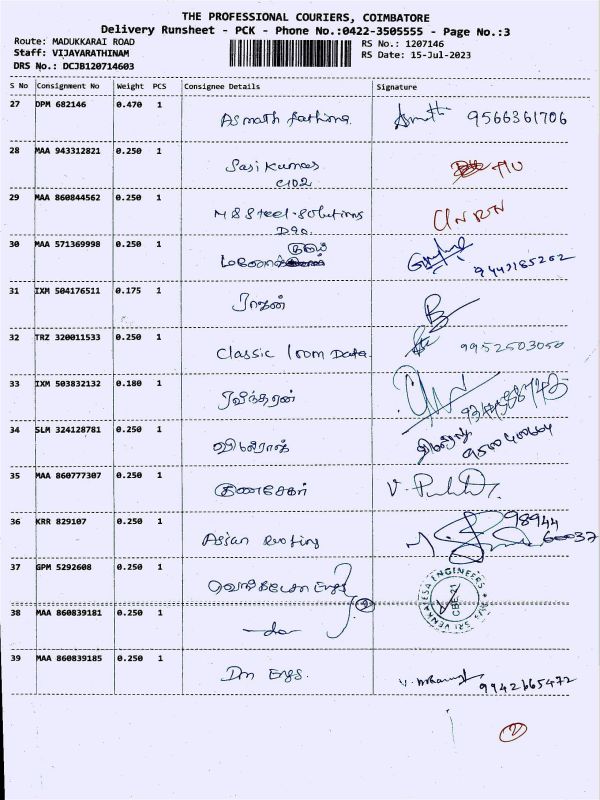 THE PROFESSIONAL COURIERS, COIMBATORE
Delivery Runsheet - PCK - Phone No.:0422-3505555 - Page No.:3
Route: MADUKKARAI ROAD
RS No.: 1207146
Staff: VIJAYARATHINAM
RS Date: 15-Jul-2023
DRS No.: DCJB120714603
S No Consignment No Weight PCS Consignee Details Signature
27 DPM 682146 0.470 1
Asmath fathima. 9566361706
28 MAA 943312821 0.250 1
Sasi Kumar
C102
29 MAA 860844562 0.250 1
M S Steel Solutions
30 MAA 571369998 0.250 1
9443185262
31 IXM 504176511 0.175 1
ராஜன்
32 TRZ 320011533 0.250 1
Classic Loom Data. 9952503050
33 IXM 503832132 0.180 1
ரவீந்தரன்
34 SLM 324128781 0.250 1
35 MAA 860777307 0.250 1
குணசேகர்
36 KRR 829107 0.250 1
98944
Asian roofing 60037
37 GPM 5292608 0.250 1
வெங்கடேசா Engs
SRI VENKATESA ENGINEERS
CBE-21
38 MAA 860839181 0.250 1
-do-
39 MAA 860839185 0.250 1
Dm Engs.
9942665472
2